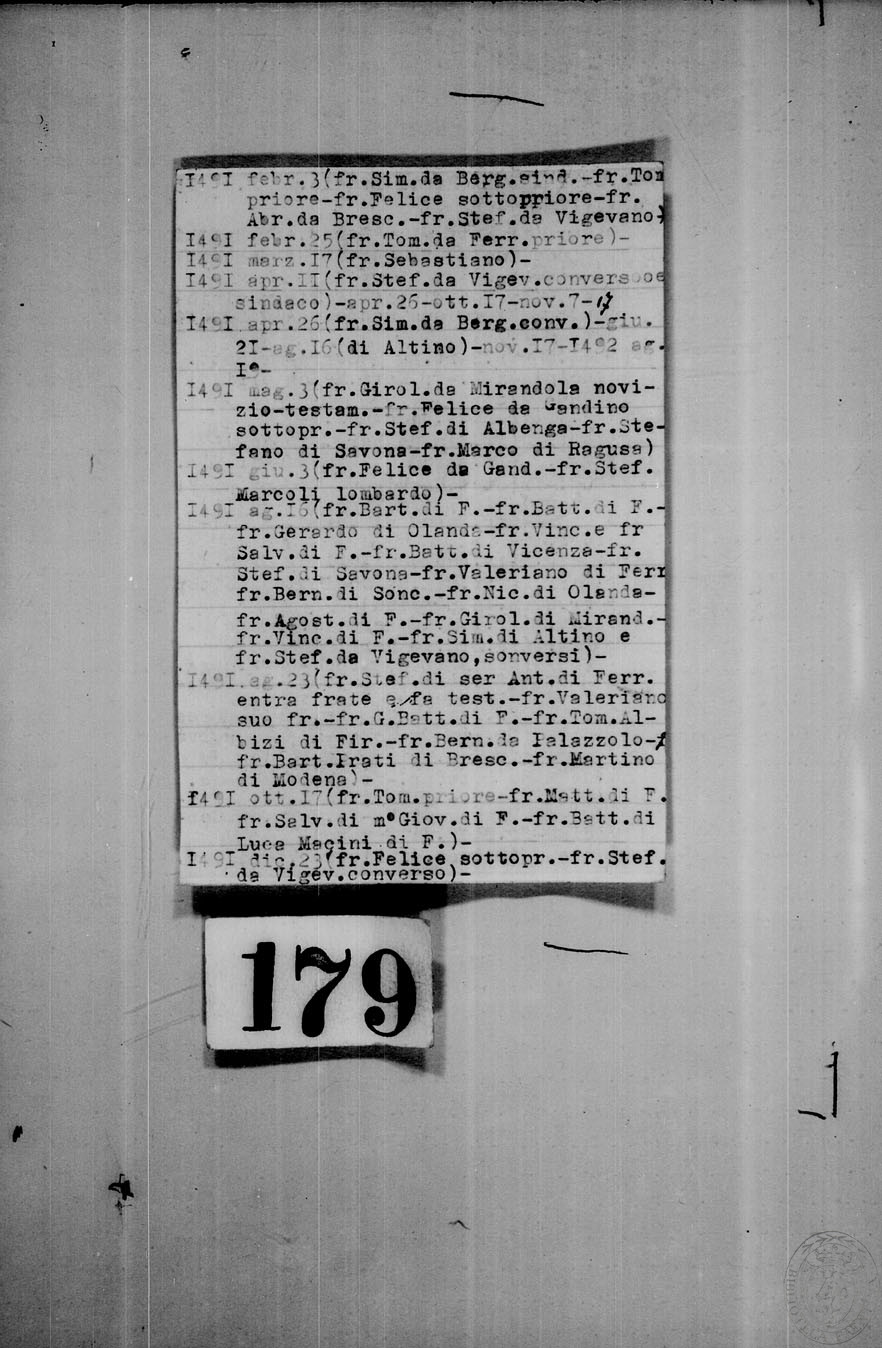 I49I febr.3(fr.Sim.da Berg.sind.-fr.Tom
priore-fr.Felice sottopriore-fr.
Abr.da Bresc.-fr.Stef.da Vigevano)
I49I febr.25(fr.Tom.da Ferr.priore)-
I49I marz.I7(fr.Sebastiano)-
I49I apr.II(fr.Stef.da Vigev.converso e
sindaco)-apr.26-ott.I7-nov.7-17
I49I apr.26(fr.Sim.da Berg.conv.)-giu.
2I-ag.I6(di Altino)-nov.I7-I492 ag.
I°-
I49I mag.3(fr.Girol.da Mirandola novi-
zio-testam.-fr.Felice da Gandino
sottopr.-fr.Stef.di Albenga-fr.Ste-
fano di Savona-fr.Marco di Ragusa)
I49I giu.3(fr.Felice da Gand.-fr.Stef.
Marcoli lombardo)-
I49I ag.I6(fr.Bart.di F.-fr.Batt.di F.-
fr.Gerardo di Olanda-fr.Vinc.e fr
Salv.di F.-fr.Batt.di Vicenza-fr.
Stef.di Savona-fr.Valeriano di Ferr
fr.Bern.di Sonc.-fr.Nic.di Olanda-
fr.Agost.di F.-fr.Girol.di Mirand.-
fr.Vinc.di F.-fr.Sim.di Altino e
fr.Stef.da Vigevano,sonversi)-
I49I ag.23(fr.Stef.di ser Ant.di Ferr.
entra frate e fa test.-fr.Valeriano
suo fr.-fr.G.Batt.di F.-fr.Tom.Al-
bizi di Fir.-fr.Bern.da Palazzolo-
fr.Bart.Prati di Bresc.-fr.Martino
di Modena)-
I49I ott.I7(fr.Tom.priore-fr.Matt.di F.
fr.Salv.di m°Giov.di F.-fr.Batt.di
Luca Macini di F.)-
I49I dic.23(fr.Felice sottopr.-fr.Stef.
da Vigev.converso)-
179